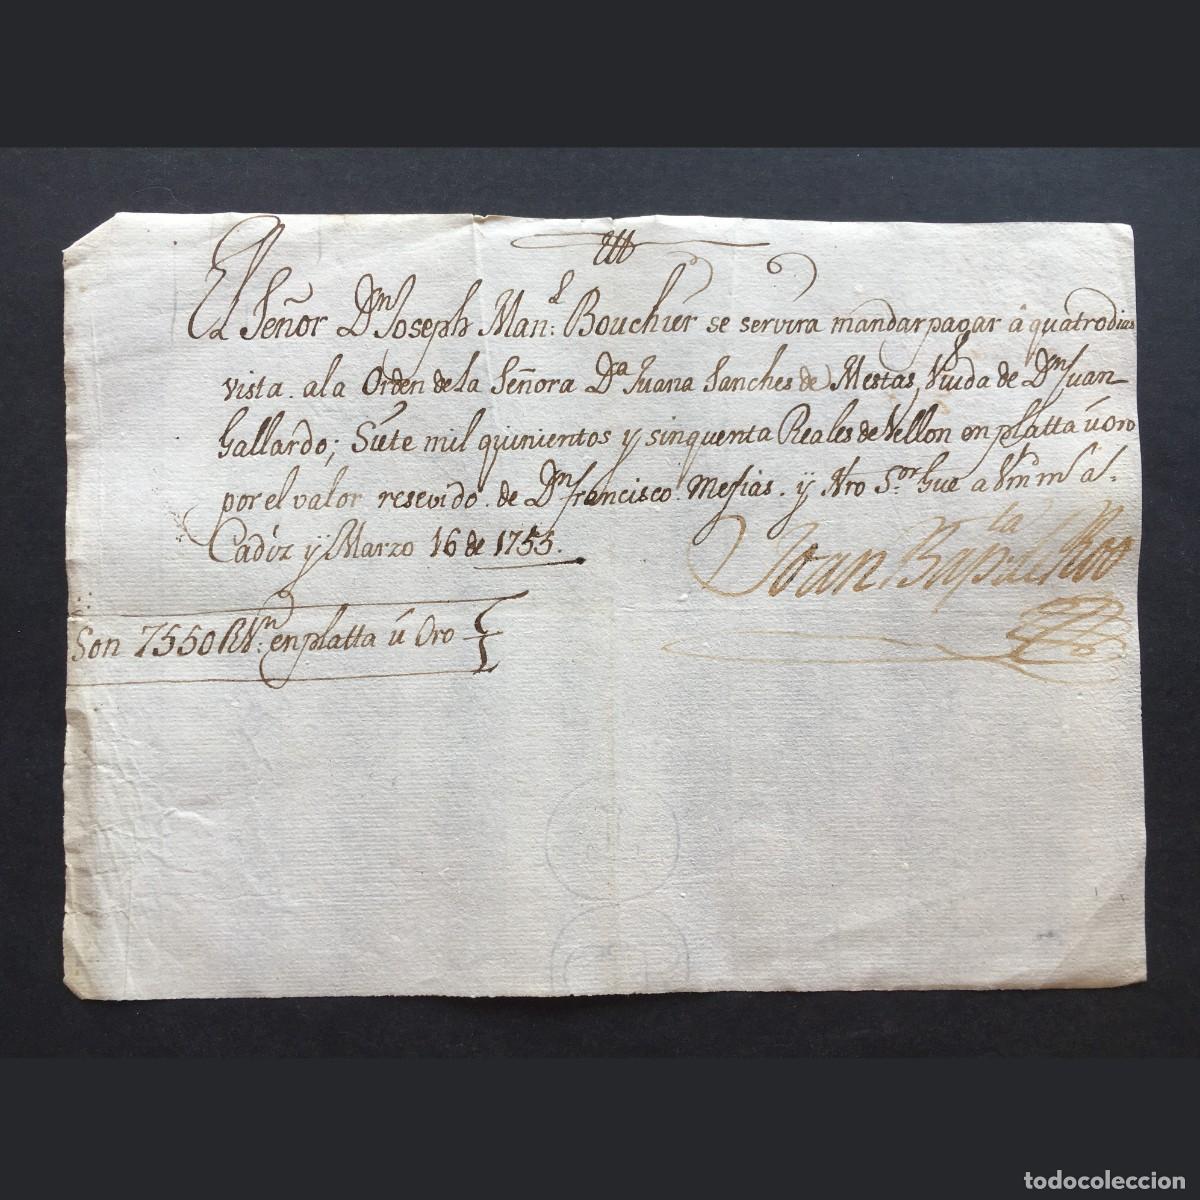 El Señor Dn Joseph Manl: Bouchier se servira mandar pagar â quatro dias
vista. a la Orden de la Señora Da Juana Sanches de Mestas, Viuda de Dn Juan
Gallardo; Siete mil quinientos y sinquenta Reales de Vellon en platta ù oro
por el valor resevido. de Dn Francisco Mesias. y Nro Sor Gue a Vm m a.
Cadiz y Marzo 16 de 1755.
Joan Bapta de Roo
Son 7550 RVn: en platta ù Oro
todocoleccion